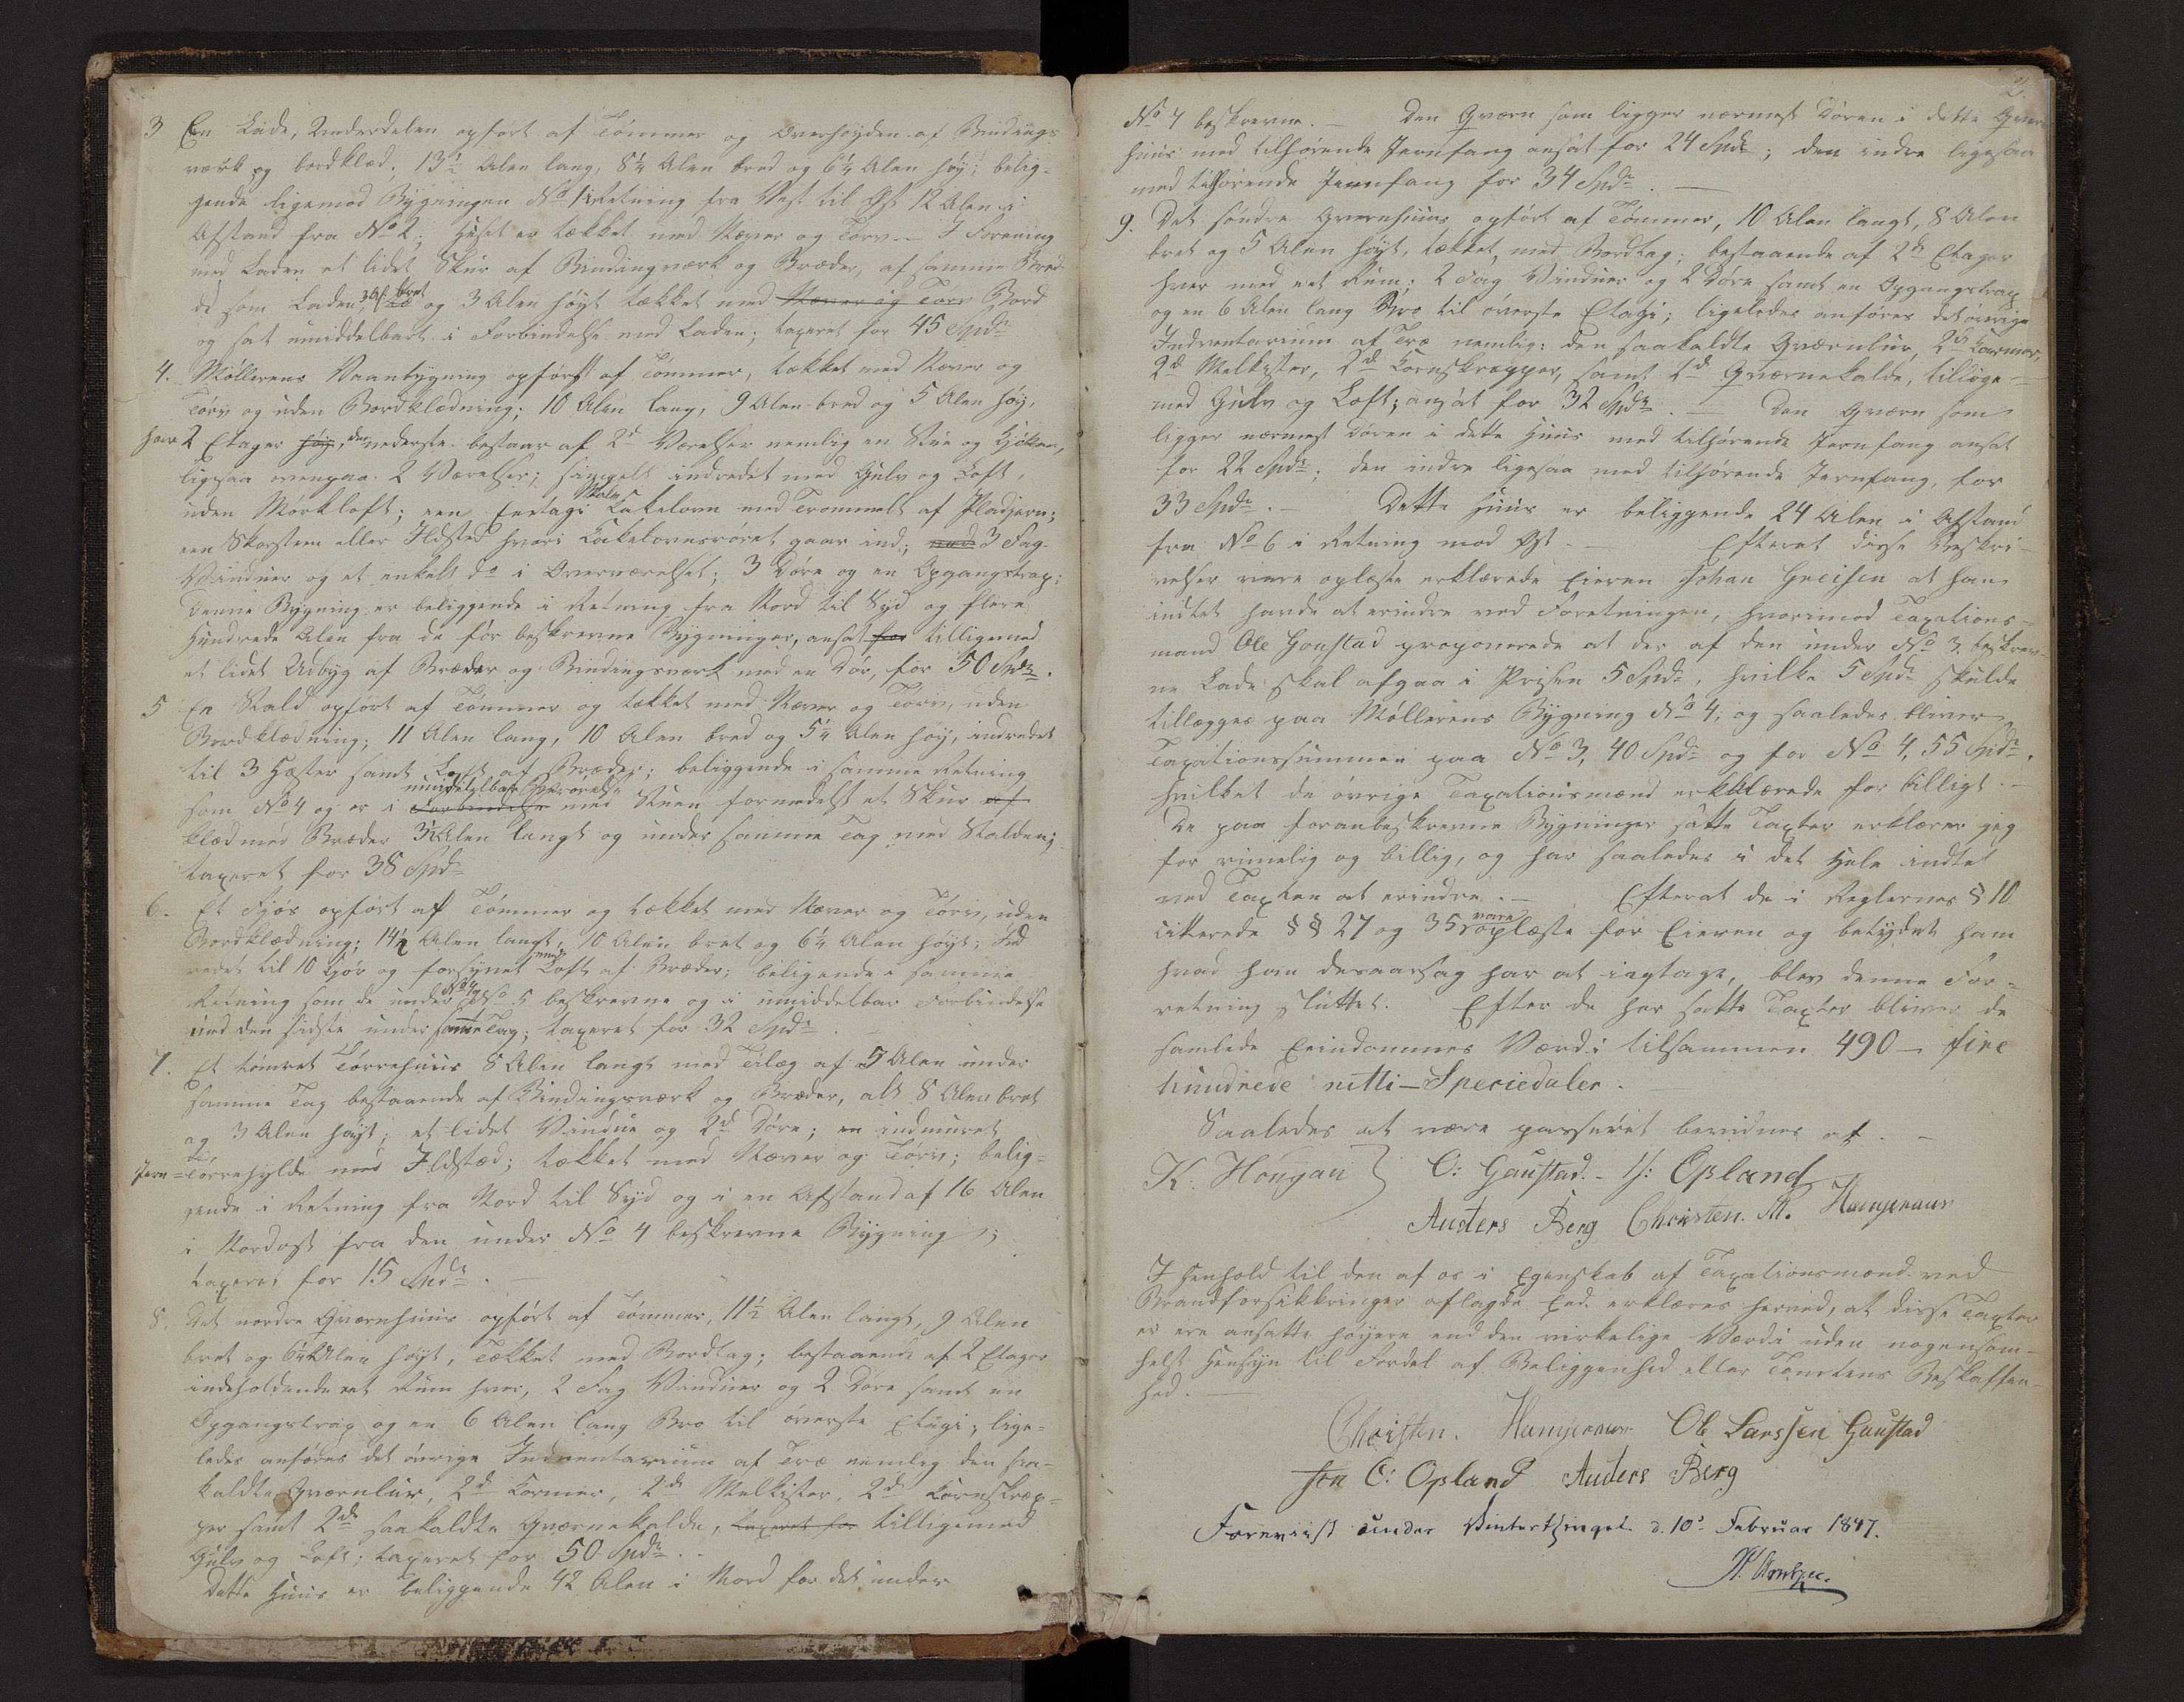 3 En Lade, Underdelen opført af Tømmer og Overhøyden af Bindings
værk og bordklæd. 13½ Alen lang, 8½ Alen bred og 6½ Alen høy; belig-
gende ligemod Bygningen No 1 i Retning fra Vest til Øst 12 Alen i
Afstand fra No 2; Huset er tækket med Næver og Torv. I Forening
med Laden et lidet Skur af Bindingværk og Bræder, af samme Bred
de som Laden, 3 Al: bret og 3 Alen høyt tækket med Næver og Torv Bord
og sat umiddelbart i Forbindelse med Laden; taxeret for 45 Spdr
4. Møllerens Vaanbygning opført af Tømmer, tækket med Næver og
Torv og uden Bordklædning; 10 Alen lang, 9 Alen bred og 5 Alen høy,
har 2 Etager høy, den nederste bestaar af 2de Værelser nemlig en Stue og Kjøken,
ligesaa ovenpaa 2 Værelser; simpelt indredet med Gulv og Loft,
uden Mørkloft; een Eetags Kakelovn med Trommelt af Pladjern;
een Skorsteen eller Ildsted hvori Kakelovnsrøret gaar ind; med 3 Fag
Vinduer og et enkelt do i Overværelset; 3 Døre og en Opgangstrap;
denne Bygning er beliggende i Retning fra Nord til Syd og flere
Hundrede Alen fra de før beskrevne Bygninger, ansat for tilligemed
et lidet Udbyg af Bræder og Bindingsværk med en Dør, for 50 Spdr.
5 En Stald opført af Tømmer og tækket med Næver og Torv, uden
Bordklædning; 11 Alen lang, 10 Alen bred og 5½ Alen høy, indredet
til 3 Hæster samt Loft af Bræder; beliggende i samme Retning
som No 4 og er i Forbindelse umiddelbar Berørelse med Stuen formedelst et Skur af
klæd med Bræder 3½ Alen langt og under samme Tag med Stalden;
taxeret for 38 Spdr
6. Et Fjøs opført af Tømmer og tækket med Næver og Torv, uden
Bordklædning; 14½ Alen langt, 10 Alen bret og 6½ Alen høyt; Ind
redet til 10 Kjør og forsynet med Loft af Bræder; beligende i samme
Retning som de under No 4 og No 5 beskrevne og i umiddelbar Forbindelse
med den sidste under samme Tag; taxeret for 32 Spdr.
7. Et tømret Tørrehuus 8 Alen langt med Tilæg af 5 Alen under
samme Tag bestaaende af Bindingsværk og Bræder, alt 8 Alen bret
og 3 Alen høyt; et lidet Vindue og 2de Døre; en indmuret
Jern-Tørrehylde med Ildstæd; tækket med Næver og Torv; belig-
gende i Retning fra Nord til Syd og i en Afstand af 16 Alen
i Nordost fra den under No 4 beskrevne Bygning;
taxeret for 15 Spdr.
8. Det nordre Qværnhuus opført af Tømmer, 11½ Alen langt, 9 Alen
bret og 6½ Alen høyt, Tækket med Bordtag; bestaaende af 2 Etager
indeholdende eet Rum hver, 2 Fag Vinduer og 2 Døre samt en
Opgangstrap og en 6 Alen lang Bro til øverste Etage; lige-
ledes anføres det øvrige Indventarium af Træ nemlig den saa-
kaldte Qværnlur, 2de Karmer, 2de Melkister, 2de Kornskrap-
per samt 2de saakaldte Qværnekalde, taxeret for tilligemed
Gulv og Loft; taxeret for 50 Spdr.
Dette Huus er beliggende 42 Alen i Nord for det under
2.
No 7 beskrevne. — Den Qværn som ligger nærmest Døren i dette Qværn
huus med tilhørende Jernfang ansat for 24 Spdr; den indre ligesaa
med tilhørende Jernfang for 34 Spdr. —
9. Det søndre Qvernhuus opført af Tømmer, 10 Alen langt, 8 Alen
bret og 5 Alen høyt, tækket med Bordtag; bestaaende af 2de Etager
hver med eet Rum; 2 Fag Vinduer og 2 Døre samt en Opgangstrap
og en 6 Alen lang Bro til øverste Etage; ligeledes anføres det øvrige
Indventarium af Træ nemlig: den saakaldte Qværnlur, 2de Karmer,
2de Melkister, 2de Kornskrapper, samt 2de Qværnekalde, tillige-
med Gulv og Loft; ansat for 32 Spdr. — Den Qværn som
ligger nærmest Døren i dette Huus med tilhørende Jernfang ansat
for 22 Spdr; den indre ligesaa med tilhørende Jernfang, for
33 Spdr. — Dette Huus er beliggende 24 Alen i Afstand
fra No 6 i Retning mod Øst — Efterat disse Beskri-
velser vare oplæste erklærede Eieren Johan Greisen at han
indtet havde at erindre ved Forretningen, hvorimod Taxations-
mand Ole Goustad proponerede at der af den under No 3 beskrev-
ne Lade skal afgaa i Prisen 5 Spdr, hvilke 5 Spdr skulde
tillægges paa Møllerens Bygning No 4, og saaledes bliver
Taxationssummen paa No 3, 40 Spdr og for No 4, 55 Spdr,
hvilket de øvrige Taxationsmænd erkklærede for billigt. —
De paa foranbeskrevne Bygninger satte Taxter erklærer jeg
for rimelig og billig, og har saaledes i det Hele indtet
ved Taxten at erindre. — Efterat de i Reglernes § 10
citerede §§ 27 og 35 vare oplæste for Eieren og betydet ham
hvad han desaarsag har at iagtage, blev denne For-
retning sluttet. Efter de her satte Taxter bliver de
samlede Eiendommes Værdi tilsammen 490 — fire
hundrede nitti — Speciedaler.
Saaledes at være passeret bevidnes af. —
K. Hougan } O: Gaustad. - J: Opland
Anders Berg Christen. M. Hamjeraur
I Henhold til den af os i Egenskab af Taxationsmænd ved
Brandforsikkringer aflagde Eed. erklæres herved, at disse Taxter
ei ere ansatte høyere end den virkelige Værdi uden nogensom-
helst Hensyn til Fordel af Beliggenhed eller Tomtens Beskaffen-
hed. —
Christen. Hamjeraur Ole Larssen Gaustad
Jon O: Opland Anders Berg
Foreviist under Vinterthinget d. 10de Februar 1847.